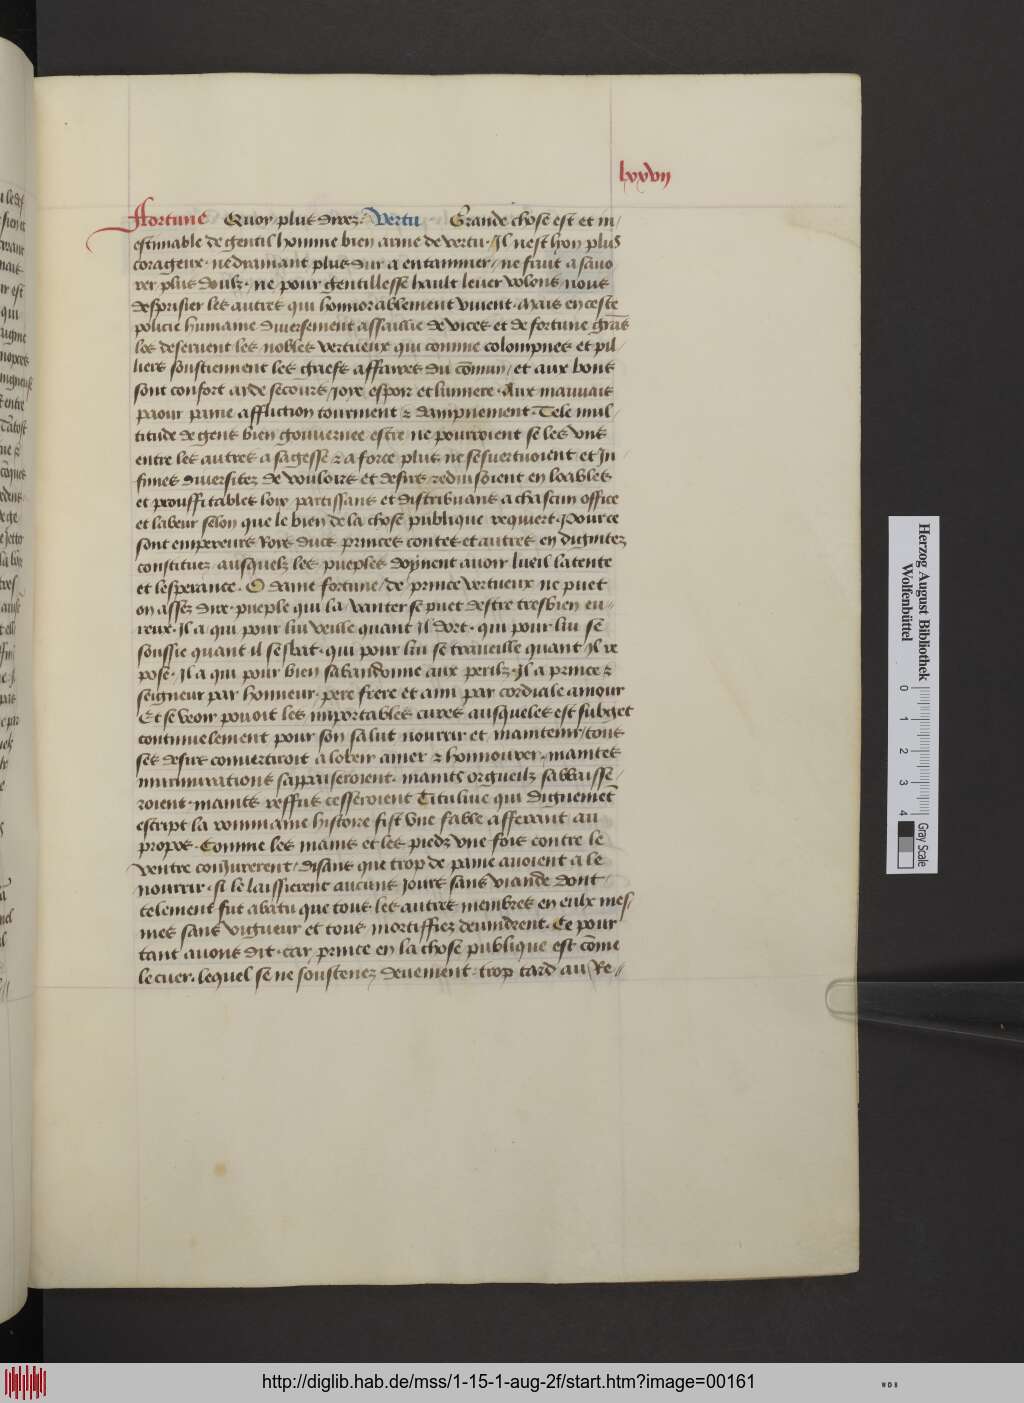 lxxvij
Fortune Quoy plus direz. Vertu Grande chose est et in/
estimable de gentil homme bien arme de vertu. Il nest lyon plus
corageux. ne dyamant plus dur a entammer/ ne fruit a savo
rer plus doulz. ne pour gentillesse hault lever volons nous
desprisier les autres qui honnorablement vivent. Mais en ceste
policie humaine diversement assaillie de vices et de fortune grās
los deservent les nobles vertueux qui comme colompnes et pil/
liers soustiennent les griefs affaires du cōmun/ et aux bons
sont confort aide secours/ joye espoir et lumiere. Aux mauvais
paour paine affliction tourment & dampnement. Tele mul/
titude de gens bien gouvernee estre ne pourroient se les uns
entre les autres a sagesse & a force plus ne sesvertuoient et in/
finies diversitez de vouloirs et desirs redinsoient en loables
et prouffitables loix partissans et distribuans a chascun office
et labeur selon que le bien de la chose publique requiert. Pour ce
sont empereurs Roys ducs princes contes et autres en dignitez
constituez ausquelz les pueples doyvent avoir lueil latente
et lesperance. O dame fortune/ de prince vertueux ne puet
on assez dire. pueple qui la/ vanter se puet destre tresbien eu//
reux. Il a qui pour lui veille quant il dort. qui pour lui se
soussie quant il sesbat. qui pour lui se traveille quant il re
pose. Il a qui pour bien sabandonne aux perilz. Il a prince &
seigneur par honneur. pere frere et ami par cordiale amour
Et se veoir povoit les importables cures ausqueles est subget
continuelement pour son salut nourrir et maintenir/ tous
ses desirs convertiroit a lobeir amer & honnourer. maintes
murmurations sappaiseroient. maints orgueilz sabbaisse/
roient. maints reffus cesseroient Tituliue qui dignemēt
escript la rommaine histoire fist une fable afferant au
propos. Comme les mains et les piedz une fois contre le
ventre conjurerent/ disans que trop de paine avoient a le
nourrir. si le laissierent aucuns jours sans viande dont
telement fut abatu que tous les autres membres en eulx mes/
mes sans vigueur et tous mortiffiez devindrent. Ce pour
tant avons dit. car prince en la chose publique est cōme
le cuer. lequel se ne soustenez deuement. trop tard au Re//
Herzog August Bibliothek
Wolfenbüttel
0 1 2 3 4
Gray Scale
http://diglib.hab.de/mss/1-15-1-aug-2f/start.htm?image=00161
WDB